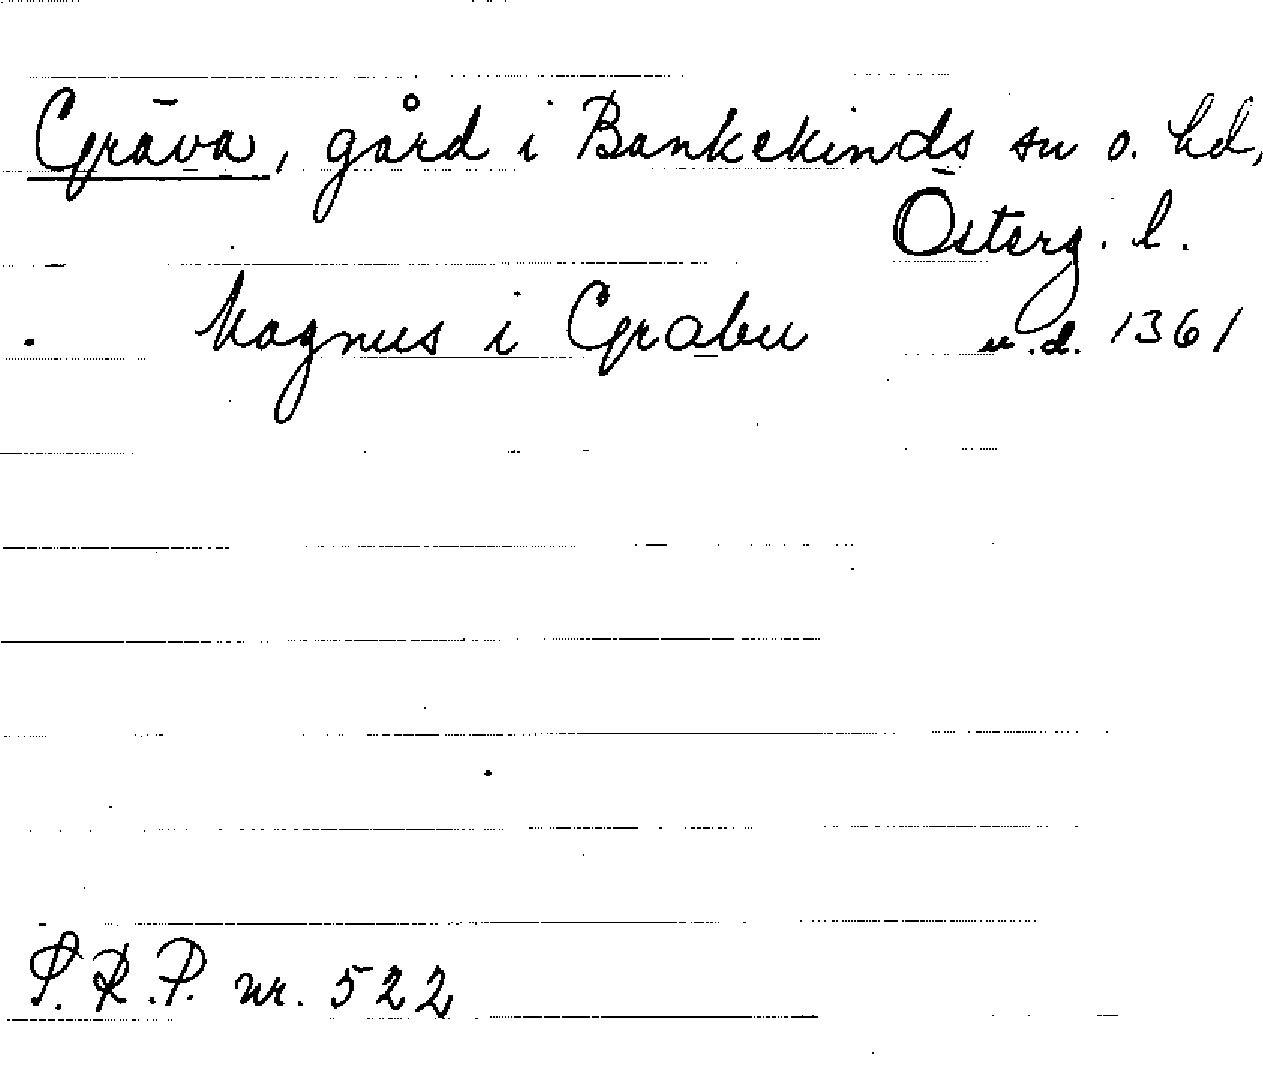 Gräva, gård i Bankekinds sn o. hd,
Österg. l.
Magnus i Grabu u.d. 1361
S.R.P. nr. 522